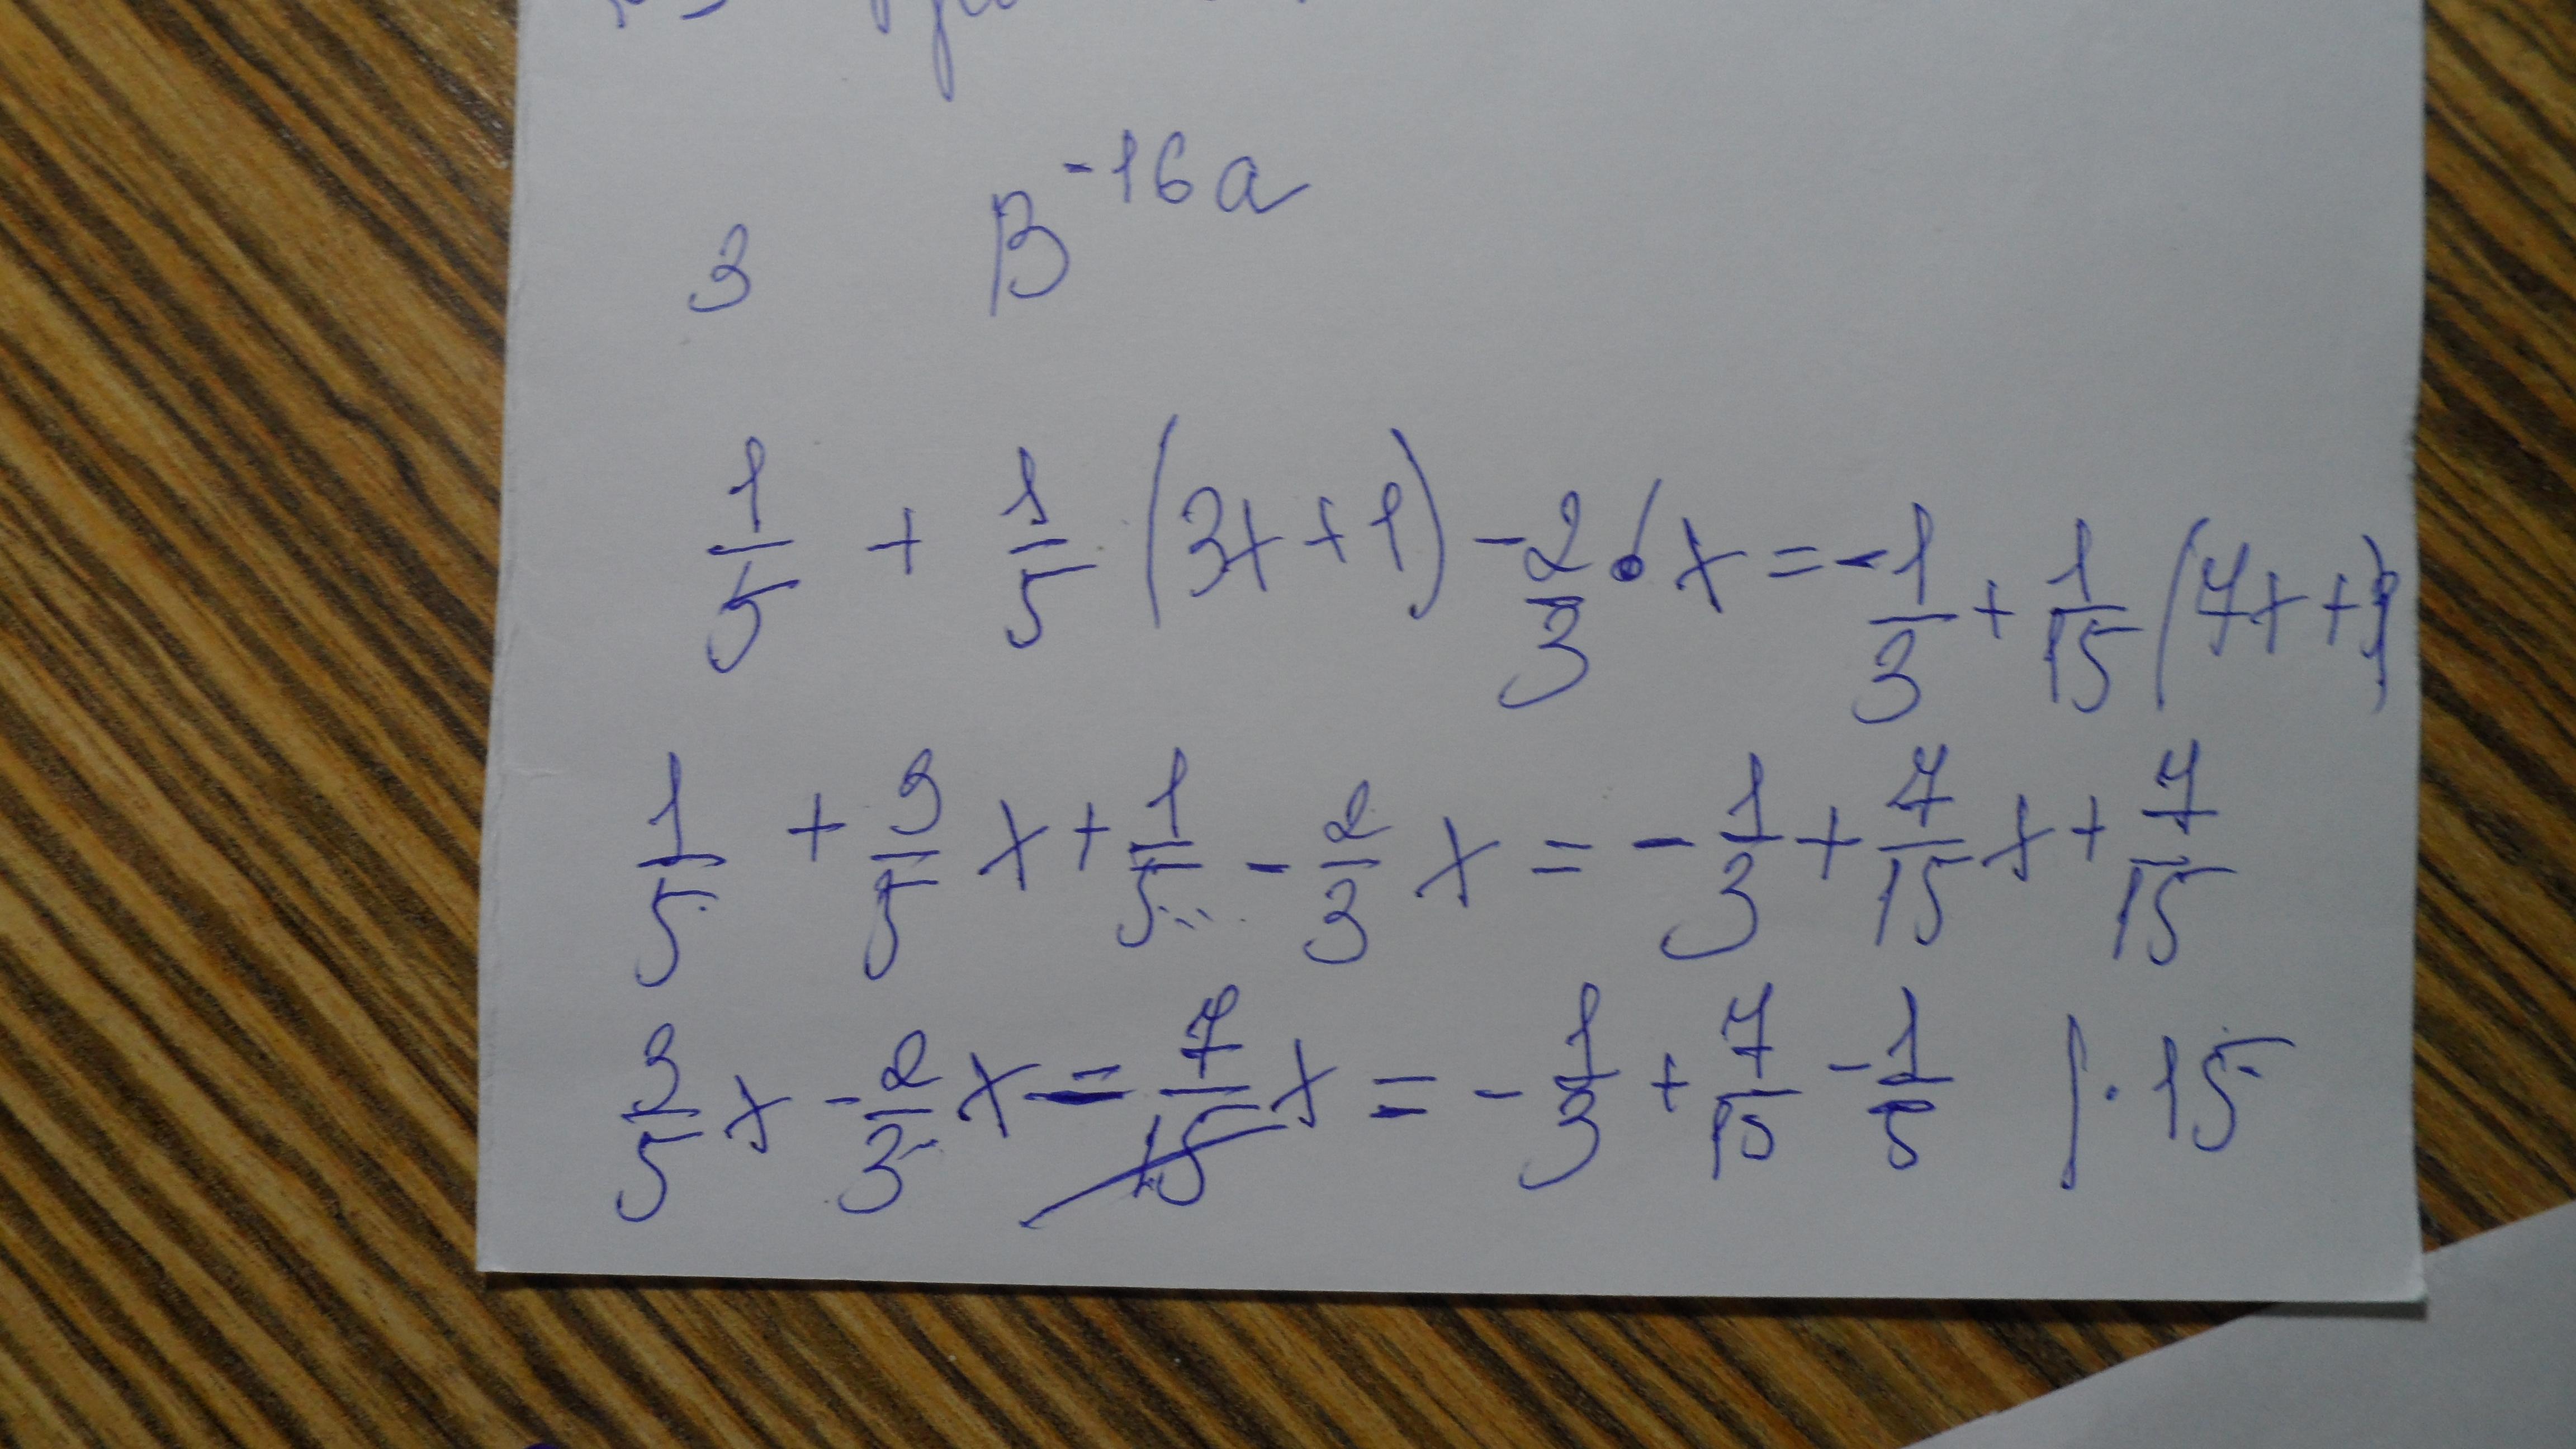 3 B^-16a
1/5 + 1/5 (3x+1) - 2/3 · x = - 1/3 + 1/15 (7x+
1/5 + 3/5 x + 1/5 - 2/3 x = - 1/3 + 7/15 x + 7/15
3/5 x - 2/3 x - 7/15 x = - 1/3 + 7/15 - 1/5 | · 15